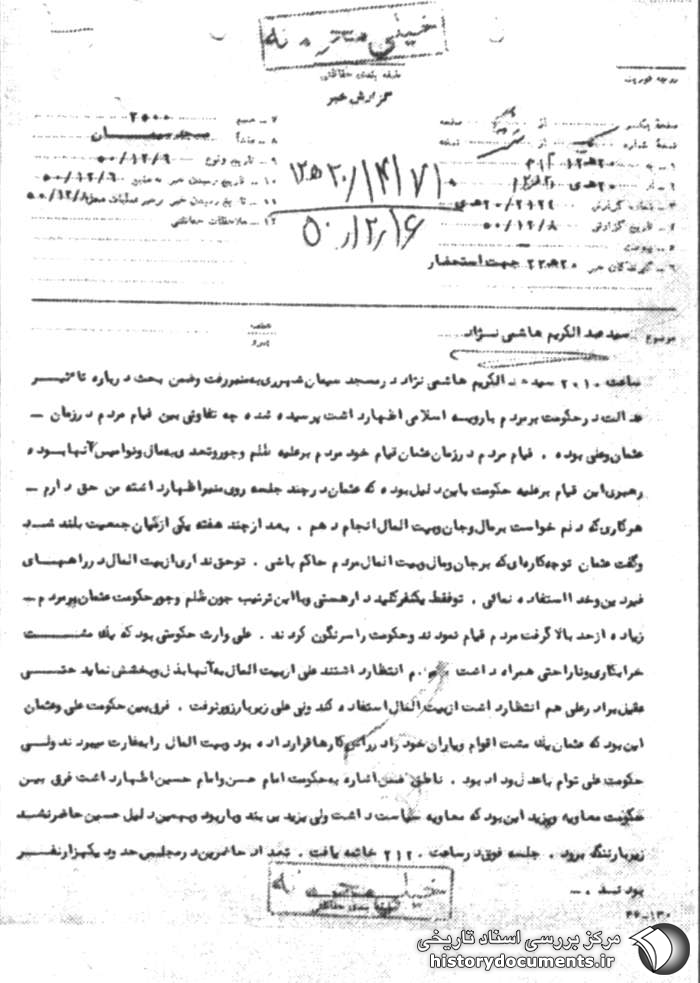 خیلی محرمانه
طبقه بندی حفاظتی
گزارش خبر
درجه فوریت
صفحه یکم از صفحه
نسخه شماره از نسخه
۱ - به ۱۲ﻫ۲۰
۲ - از ۲۰ﻫـ
۳ - شماره گزارش
۴ - تاریخ گزارش ۵۰/۱۲/۸
۵ - پیوست -
۶ - گیرندگان خبر جهت استحضار
۷ - منبع ۲۵۰۰
۸ - منشأ مسجد سمعان
۹ - تاریخ وقوع ۵۰/۱۲/۶
۱۰ - تاریخ رسیدن خبر به منبع ۵۰/۱۲/۶
۱۱ - تاریخ رسیدن خبر رهبر عملیات محل ۵۰/۱۲/۸
۱۲ - ملاحظات حفاظتی
۵۰/۱۲/۱۶
موضوع سید عبدالکریم هاشمی نژاد
عطف
پیرو
ساعت ۲۰۱۰ سید عبدالکریم هاشمی نژاد در مسجد سمعان شهرری به منبر رفت وضمن بحث درباره تاثیر
عدالت در حکومت بر مردم با رویه اسلامی اظهار داشت پرسیده شده چه تفاوتی بین قیام مردم در زمان -
عثمان وعلی بوده . قیام مردم در زمان عثمان قیام خود مردم بر علیه ظلم وجور وتعدی به مال ونوامیس آنها بوده
رهبری این قیام بر علیه حکومت باین دلیل بوده که عثمان در چند جلسه روی منبر اظهار داشته من حق دارم -
هرکاری که دلم خواست بر مال وجان وبیت المال انجام دهم . بعد از چند هفته یکی از میان جمعیت بلند شد
وگفت عثمان توچه کاره ای که بر جان ومال وبیت المال مردم حاکم باشی . توحق نداری از بیت المال در راههای
غیر دین وخدا استفاده نمائی . توفقط یکنفر کلید دار هستی وبا این ترتیب چون ظلم وجور حکومت عثمان بر مردم -
زیاده از حد بالا گرفت مردم قیام نمودند وحکومت را سرنگون کردند . علی وارث حکومتی بود که یک مشت
خرابکاری وناراحتی همراه داشت مردم انتظار داشتند علی از بیت المال به آنها بذل وبخشش نماید حتی
عقیل برادر علی هم انتظار داشت از بیت المال استفاده کند ولی علی زیر بار زور نرفت . فرق بین حکومت علی وعثمان
این بود که عثمان یک مشت اقوام ویاران خود را در راس کارها قرار داده بود وبیت المال را به غارت میبردند ولی
حکومت علی توام با عدل وداد بود . ناطق ضمن اشاره به حکومت امام حسن وامام حسین اظهار داشت فرق بین
حکومت معاویه ویزید این بود که معاویه سیاست داشت ولی یزید بی بند وبار بود وبهمین دلیل حسین حاضر نشد
زیر بار ننگ برود . جلسه فوق در ساعت ۲۱۲۰ خاتمه یافت . تعداد حاضرین در مجلس حدود یکهزار نفر
بودند . -
خیلی محرمانه
طبقه بندی حفاظتی
۴۶-۱۳۰
مرکز بررسی اسناد تاریخی
historydocuments.ir